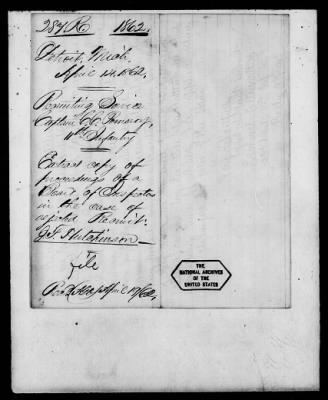 284 R 1862.
Detroit, Mich.
April 14. 1862.
Recruiting Service
Captain C. C. Pomeroy,
11th Infantry
Extract copy of
proceedings of a
Board of Inspectors
in the case of
rejected Recruit:
J. T. Hutchinson
file
April 17/62.
THE
NATIONAL ARCHIVES
OF THE
UNITED STATES